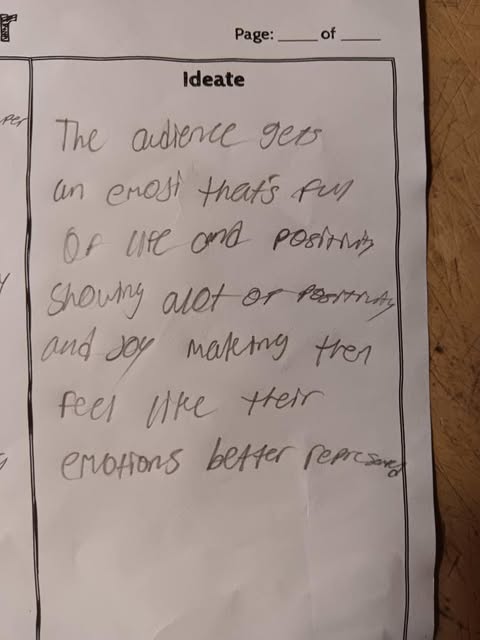 Page: _____ of _____
Ideate
The audience gets
an emoji that's full
of life and positivity
showing alot of positivity
and joy making then
feel like their
emotions better represened